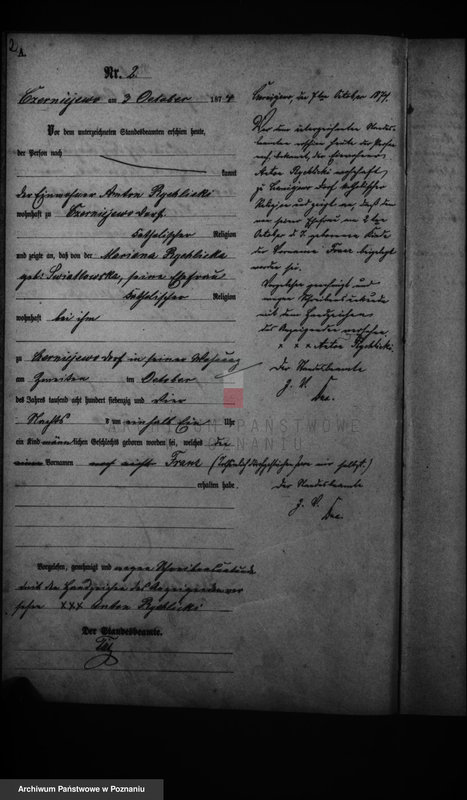 2
A.
Nr. 2
Czerniejewo am 3 October 1874
Vor dem unterzeichneten Standesbeamten erschien heute,
der Person nach
kannt
der Einwohner Anton Rychlicki
wohnhaft zu Czerniejewo dorf
katholischer Religion
und zeigte an, daß von der Mariana Rychlicka
geb: Swiatkowska, seine Ehefrau
katholischer Religion
wohnhaft bei ihm
zu Czerniejewo dorf in seiner Wohnung
am Zweiten ten October
des Jahres tausend acht hundert siebenzig und vier
Nachts um einhalb Ein Uhr
ein Kind männlichen Geschlechts geboren worden sei, welches die
einen Vornamen noch nicht Franz
erhalten habe
Vorgelesen, genehmigt und wegen Schreibensunkunde
mit den Handzeichen des Anzeigenden ver
sehen xxx Anton Rychlicki
Der Standesbeamte.
Czerniejewo, den October 1874.
Vor dem unterzeichneten Standes-
beamten erschien heute der Person
nach bekannt, der Einwohner
Anton Rychlicki wohnhaft
zu Czerniejewo Dorf katholischer
Religion und zeigte an, daß dem
von seiner Ehefrau am 2ten
October d. J. geborenen Kinde
der Vorname Franz beigelegt
worden sei.
Vorgelesen genehmigt und
wegen Schreibensunkunde
mit dem Handzeichen
des Anzeigenden versehen.
x x x Anton Rychlicki
Der Standesbeamte
J. V.
Der Standesbeamte
J. V.
ARCHIWUM PAŃSTWOWE
W POZNANIU
Archiwum Państwowe w Poznaniu